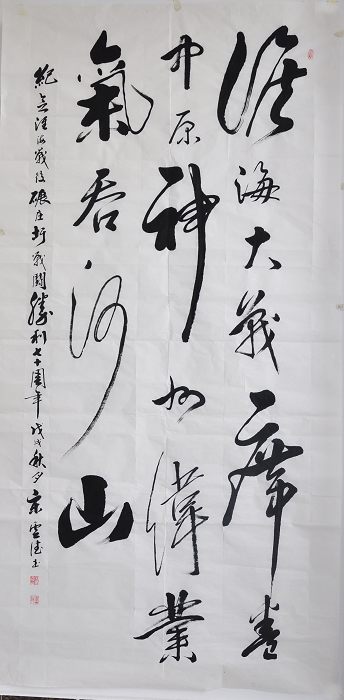 淮海大戰席卷
中原神州偉業
氣吞河山
紀念淮海戰役碾庄圩戰鬪勝利七十周年戊戌秋月宋雲德書